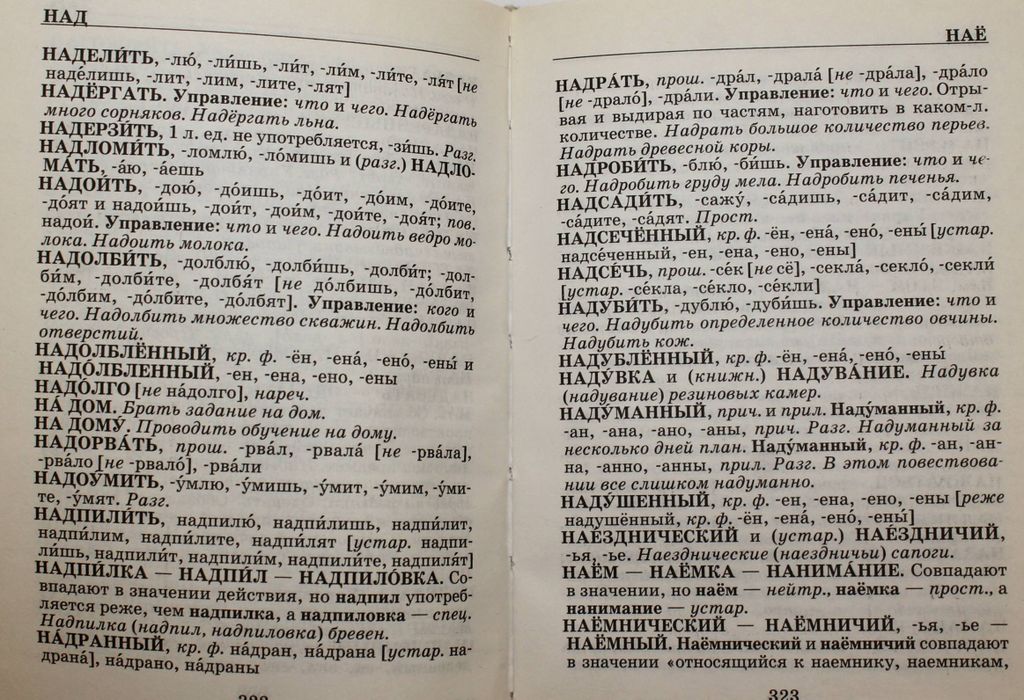 НАД
НАДЕЛИ́ТЬ, -лю́, -ли́шь, -ли́т, -ли́м, -ли́те, -ля́т [не
наде́лишь, -лит, -лим, -лите, -лят]
НАДЁРГАТЬ. Управление: что и чего. Надёргать
много сорняков. Надёргать льна.
НАДЕРЗИ́ТЬ, 1 л. ед. не употребляется, -зи́шь. Разг.
НАДЛОМИ́ТЬ, -ломлю́, -ло́мишь и (разг.) НАДЛО-
МА́ТЬ, -а́ю, -а́ешь
НАДОИ́ТЬ, -дою́, -до́ишь, -до́ит, -до́им, -до́ите,
-до́ят и надои́шь, -дои́т, -дои́м, -дои́те, -доя́т; пов.
надои́. Управление: что и чего. Надоить ведро мо-
лока. Надоить молока.
НАДОЛБИ́ТЬ, -долблю́, -долби́шь, -долби́т; -дол-
би́м, -долби́те, -долбя́т [не до́лбишь, -до́лбит,
-до́лбим, -до́лбите, -до́лбят]. Управление: кого и
чего. Надолбить множество скважин. Надолбить
отверстий.
НАДОЛБЛЁННЫЙ, кр. ф. -ён, -ена́, -ено́, -ены́ и
НАДО́ЛБЛЕННЫЙ, -ен, -ена, -ено, -ены
НАДО́ЛГО [не на́долго], нареч.
НА́ ДОМ. Брать задание на дом.
НА ДОМУ́. Проводить обучение на дому.
НАДОРВА́ТЬ, прош. -рва́л, -рвала́ [не -рва́ла],
-рва́ло [не -рвало́], -рва́ли
НАДОУ́МИТЬ, -у́млю, -у́мишь, -у́мит, -у́мим, -у́ми-
те, -у́мят. Разг.
НАДПИЛИ́ТЬ, надпилю́, надпи́лишь, надпи́лит,
надпи́лим, надпи́лите, надпи́лят [устар. надпи-
ли́шь, надпили́т, надпили́м, надпили́те, надпиля́т]
НАДПИ́ЛКА — НАДПИ́Л — НАДПИЛО́ВКА. Со-
впадают в значении действия, но надпил употреб-
ляется реже, чем надпилка, а надпиловка — спец.
Надпилка (надпил, надпиловка) бревен.
НА́ДРАННЫЙ, кр. ф. на́дран, на́драна [устар. на-
драна́], на́драно, на́драны
НАЁ
НАДРА́ТЬ, прош. -дра́л, -драла́ [не -дра́ла], -дра́ло
[не -драло́], -дра́ли. Управление: что и чего. Отры-
вая и выдирая по частям, наготовить в каком-л.
количестве. Надрать большое количество перьев.
Надрать древесной коры.
НАДРОБИ́ТЬ, -блю́, -би́шь. Управление: что и че-
го. Надробить груду мела. Надробить печенья.
НАДСАДИ́ТЬ, -сажу́, -са́дишь, -са́дит, -са́дим,
-са́дите, -са́дят. Прост.
НАДСЕЧЁННЫЙ, кр. ф. -ён, -ена́, -ено́, -ены́ [устар.
надсе́ченный, -ен, -ена, -ено, -ены]
НАДСЕ́ЧЬ, прош. -се́к [не сё], -секла́, -секло́, -секли́
[устар. -се́кла, -се́кло, -се́кли]
НАДУБИ́ТЬ, -дублю́, -дуби́шь. Управление: что и
чего. Надубить определенное количество овчины.
Надубить кож.
НАДУБЛЁННЫЙ, кр. ф. -ён, -ена́, -ено́, -ены́
НАДУ́ВКА и (книжн.) НАДУВА́НИЕ. Надувка
(надувание) резиновых камер.
НАДУ́МАННЫЙ, прич. и прил. Наду́манный, кр. ф.
-ан, -ана, -ано, -аны, прич. Разг. Надуманный за
несколько дней план. Наду́манный, кр. ф. -ан, -ан-
на, -анно, -анны, прил. Разг. В этом повествова-
нии все слишком надуманно.
НАДУ́ШЕННЫЙ, кр. ф. -ен, -ена, -ено, -ены [реже
надушённый, кр. ф. -ён, -ена́, -ено́, -ены́]
НАЕ́ЗДНИЧЕСКИЙ и (устар.) НАЕ́ЗДНИЧИЙ,
-ья, -ье. Наезднические (наездничьи) сапоги.
НАЁМ — НАЁМКА — НАНИМА́НИЕ. Совпадают
в значении, но наём — нейтр., наёмка — прост., а
нанимание — устар.
НАЁМНИЧЕСКИЙ — НАЁМНИЧИЙ, -ья, -ье —
НАЁМНЫЙ. Наёмнический и наёмничий совпадают
в значении «относящийся к наемнику, наемникам,
323